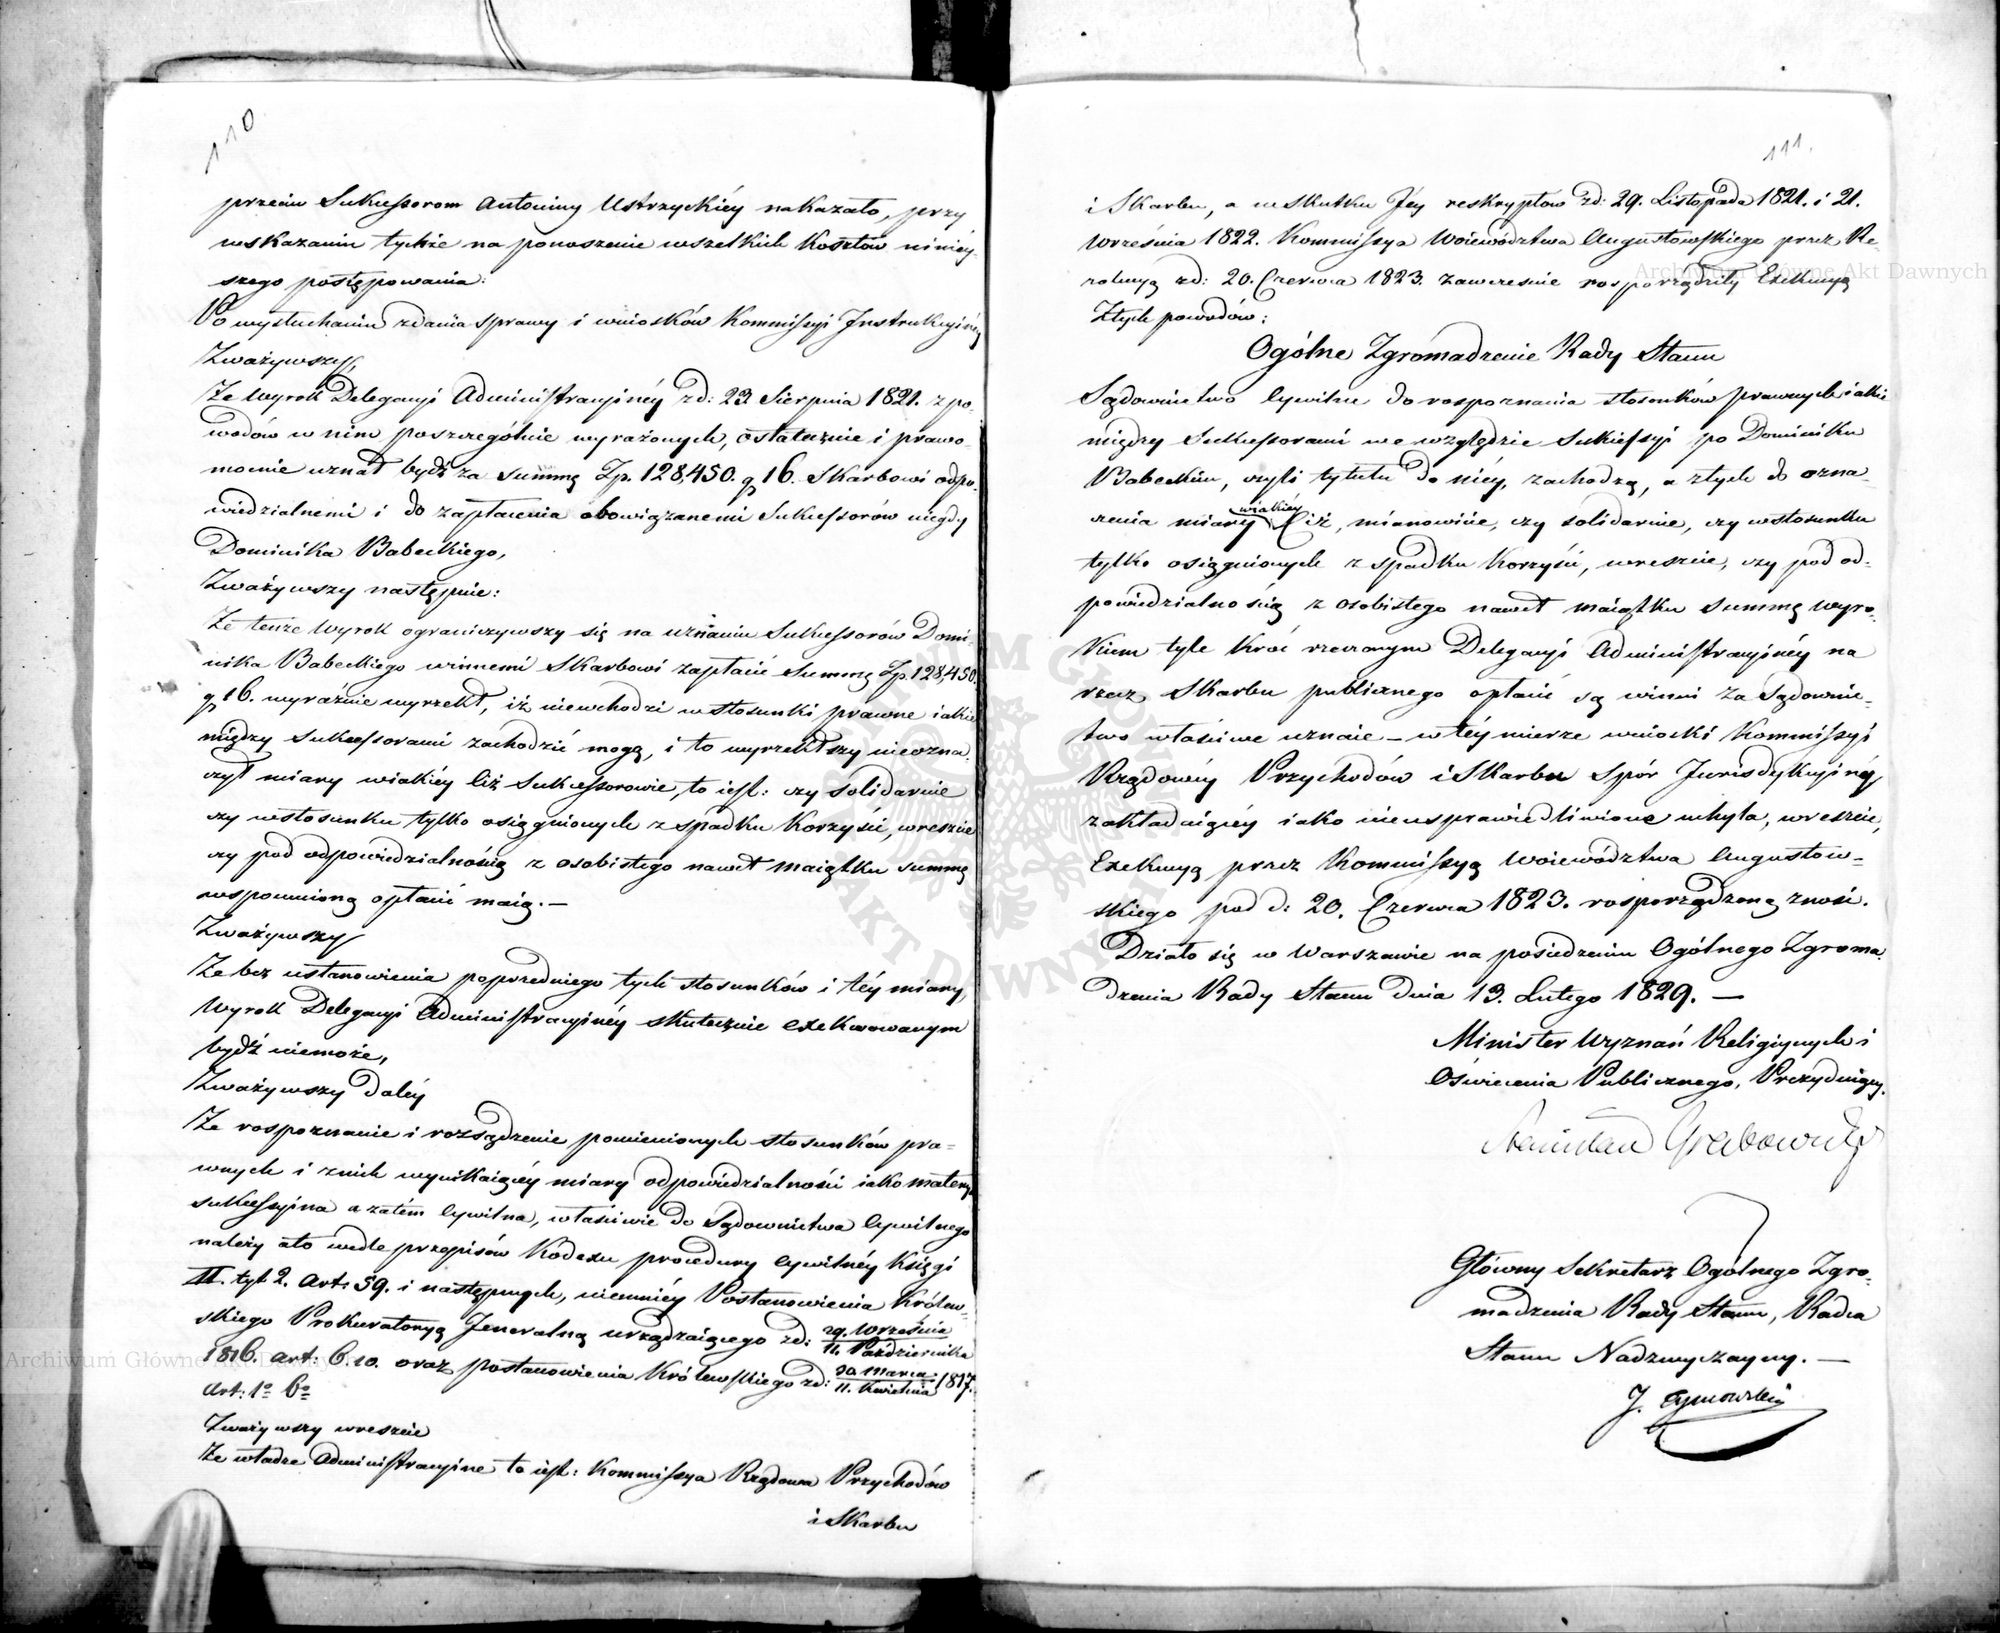 110
przeciw Sukcessorom Antoniny Ustrzyckiéy nakazało, przy
wskazaniu tychże na ponoszenie wszelkich kosztów niniéy-
szego postępowania:
Po wysłuchaniu zdania sprawy i wniosków Kommissyi Instrukcyinéy
Zważywszy,
Że Wyrok Delegacyi Administracyinéy zd: 23 Sierpnia 1821. z po-
wodów w nim poszczególnie wyrażonych, ostatecznie i prawo-
mocnie uznał bydź za Summę Zp. 128,450. g 16. Skarbowi odpo-
wiedzialnemi i do zapłacenia obowiązanemi Sukcessorów niegdy
Dominika Babeckiego,
Zważywszy następnie:
Że tenże Wyrok ograniczywszy się na uznaniu Sukcessorów Domi-
nika Babeckiego winnemi Skarbowi zapłacić Summę Zp. 128,450.
g 16. wyraźnie wyrzekł, iż niewchodzi w stosunki prawne iakie
między Sukcessorami zachodzić mogą, i to wyrzekłszy nieozna-
czył miary wiakiéy Ciż Sukcessorowie, to iest: czy solidarnie
czy w stosunku tylko osiągnionych z spadku Korzyści, wreszcie
czy pod odpowiedzialnością z osobistego nawet maiątku summę
wspomnioną opłacić maią. —
Zważywszy
Że bez ustanowienia poprzedniego tych stosunków i téy miary,
Wyrok Delegacyi Administracyinéy skutecznie exekwowanym
bydź niemoże,
Zważywszy daléy
Że rospoznanie i rozsądzenie pomienionych stosunków pra-
wnych i znich wynikaiącéy miary odpowiedzialności iako materya
sukcessyina a zatém Cywilna, właściwie do Sądownictwa Cywilnego
należy ato wedle przepisów Kodexu procedury Cywilnéy Księgi
II. tyt. 2. Art: 59. i następnych, niemniéy Postanowienia Królew-
skiego Prokuratoryą Jeneralną urządzaiącego zd: 29. Września
11. Października
1816. art: 6. 10. oraz postanowienia Królewskiego zd: 30 Marca 1817.
11. Kwietnia
Art: 1º 6º
Zważywszy wreszcie
Że władze Administracyine to iest: Kommissya Rządowa Przychodów
i Skarbu
111.
i Skarbu, a w skutku Jéy reskryptów zd: 29. Listopada 1821. i 21.
Września 1822. Kommissya Woiewództwa Augustowskiego przez Re-
zolucyą zd: 20. Czerwca 1823. zawcześnie rosporządziły Exekucyą
Ztych powodów:
Ogólne Zgromadzenie Rady Stanu
Sądownictwo Cywilne do rospoznania stosunków prawnych iakie
między Sukcessorami we względzie Sukcessyi po Dominiku
Babeckim, czyli tytułu do niéy, zachodzą, a ztych do ozna-
czenia miary wiakiéy Ciż, mianowicie, czy solidarnie, czy w stosunku
tylko osiągnionych z spadku Korzyści, wreszcie, czy pod od-
powiedzialnością z osobistego nawet maiątku summę wyro-
kiem tyle kroć rzeczonym Delegacyi Administracyinéy na
rzecz Skarbu publicznego opłacić są winni za Sądownic-
two właściwe uznaie — w téy mierze wnioski Kommissyi
Rządowéy Przychodów i Skarbu Spór Jurisdykcyiny
zakładaiącéy iako nieusprawiedliwione uchyla, wreszcie,
Exekucyą przez Kommissyą Woiewództwa Augustow-
skiego pod d: 20. Czerwca 1823. rosporządzoną znosi.
Działo się w Warszawie na posiedzeniu Ogólnego Zgroma-
dzenia Rady Stanu dnia 13. Lutego 1829. —
Minister Wyznań Religiynych i
Oświecenia Publicznego, Prezyduiący.
Stanisław Grabowski
Główny Sekretarz Ogólnego Zgro-
madzenia Rady Stanu, Radca
Stanu Nadzwyczayny. —
J. Tymowski
Archiwum Główne Akt Dawnych
Archiwum Główne Akt Dawnych
ARCHIWUM GŁÓWNE AKT DAWNYCH